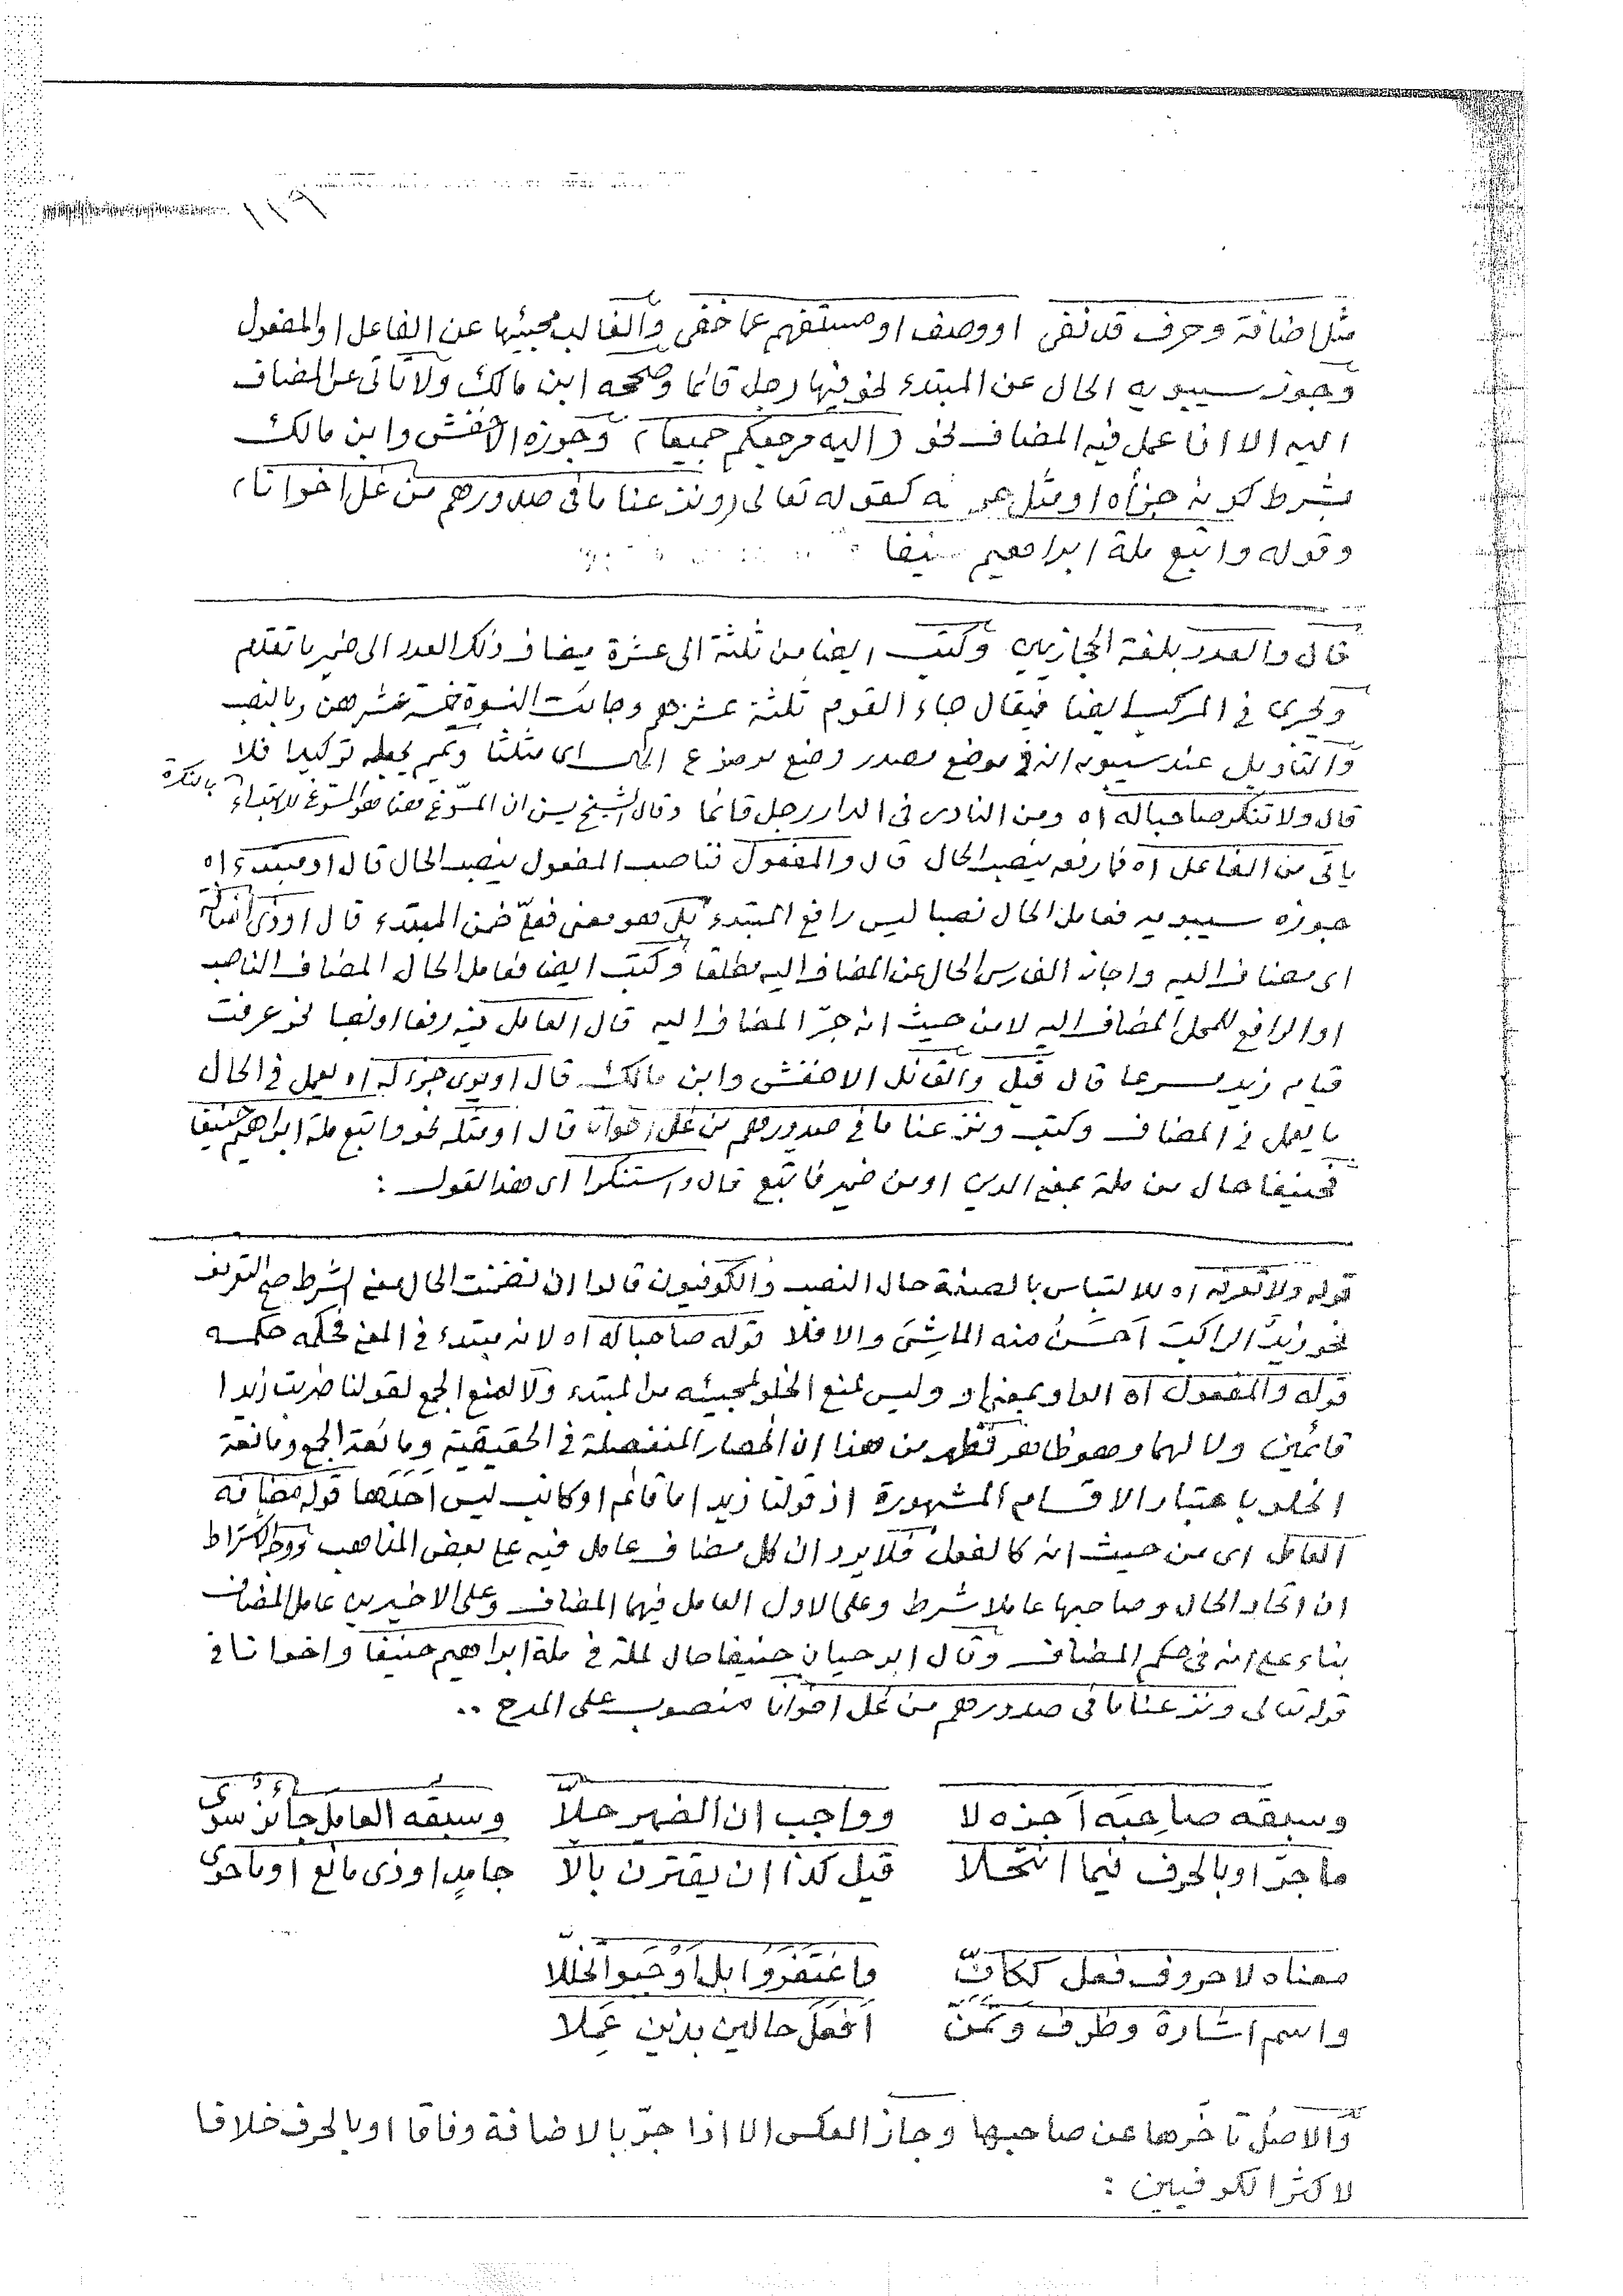 ١١٩
مثل اضافة وحرف قد نفى او وصف او مستفهم عما خفى والغالب مجيئها عن الفاعل او المفعول
وجوز سيبويه الحال عن المبتدء نحو فيها رجل قائما وصححه ابن مالك ولا تاتى عن المضاف
اليه الا اذا عمل فيه المضاف نحو (اليه مرجعكم جميعا) وجوزه الاخفش وابن مالك
بشرط كونه جزأه او مثل كقوله تعالى (ونزعنا ما فى صدورهم من غل اخوانا)
وقوله واتبع ملة ابراهيم حنيفا
قال والعدد بلغة الحجازيين وكتب ايضا من ثلثة الى عشرة يضاف ذلك العدد الى ضمير ما تقدم
ويجرى فى المركب ايضا فيقال جاء القوم ثلثة عشرهم وجائت النسوة خمسة عشرهن وبالنصب
والتاويل عند سيبويه انه فى موضع مصدر وضع موضع الحال اى مثلثا وتميم يجعله توكيدا فلا
قال ولا تنكر صاحبا له اه ومن النادر فى الدار رجل قائما وقال الشيخ يسن ان المسوّغ هنا هو المسوّغ للابتداء بالنكرة
ياتى من الفاعل اه فما رفعه ينصب الحال قال والمفعول فناصب المفعول ينصب الحال قال او مبتدء اه
جوزه سيبويه فعامل الحال نصبا ليس رافع المبتدء بل هو معنى فعل ضمن المبتدء قال او ذى اضافة
اى مضاف اليه واجاز الفارسى الحال عن المضاف اليه مطلقا وكتب ايضا فعامل الحال المضاف الناصب
او الرافع للمحل المضاف اليه لا من حيث انه جرّ المضاف اليه قال العامل فيه رفعا او نصبا نحو عرفت
قيام زيد مسرعا قال قيل والقائل الاخفش وابن مالك قال او يرى جزء له اه يعمل فى الحال
ما يعمل فى المضاف وكتب ونزعنا ما فى صدورهم من غل اخوانا قال او مثله نحو واتبع ملة ابراهيم حنيفا
فحنيفا حال من ملة بمعنى الدين او من ضمير فاتبع قال واستنكرا اى هذا القول :
قوله ولا تعرفه اه للالتباس بالصفة حال النصب والكوفيون قالوا ان تضمنت الحال معنى الشرط صح التعريف
نحو زيد الراكب احسن منه الماشى والا فلا قوله صاحبا له اه لانه مبتدء فى المعنى فحكمه حكمه
قوله والمفعول اه الواو بمعنى او وليس لمنع الخلو لمجيئه من المبتدء ولا لمنع الجمع لقولنا ضربت زيدا
قائمين ولا لهما وهو ظاهر فظهر من هذا ان انحصار المنفصلة فى الحقيقية ومانعة الجمع ومانعة
الخلو باعتبار الاقسام المشهورة اذ قولنا زيد اما قائم او كاتب ليس احدها قوله مضافه
العامل اى من حيث انه كالفعل فلا يرد ان كل مضاف عامل فيه على بعض المذاهب ووجه الاشتراط
ان اتحاد الحال وصاحبها عاملا شرط وعلى الاول العامل فيهما المضاف وعلى الاخيرين عامل المضاف
بناء على انه فى حكم المضاف وقال ابو حيان حنيفا حال لملة فى ملة ابراهيم حنيفا واخوانا فى
قوله تعالى ونزعنا ما فى صدورهم من غل اخوانا منصوب على المدح ..
وسبقه صاحبه اجزه لا   وواجب ان الضمير حلّا   وسبقه العامل جائز سوى
ما جرّ او بالحرف فيما انتحلا   قيل كذا ان يقترن بالّا   جامدٍ او ذى مانع او ما حوى
معناه لا حروف فعل ككأنّ   واغتفروا بل اوجبوا تخلّلا
واسم اشارة وظرف وكمن   افعلَ حالين بذين عملا
والاصل تاخرها عن صاحبها وجاز العكس الا اذا جرّ بالاضافة وفاقا او بالحرف خلافا
لاكثر الكوفيين :